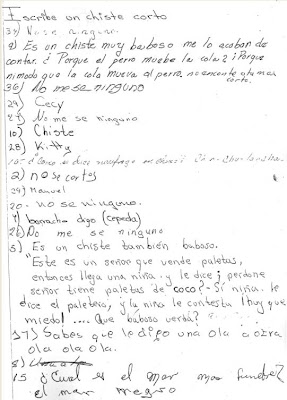 Escribe un chiste corto
34) No se ninguno
9) Es un chiste muy baboso me lo acaban de
contar. ¿ Porque el perro muebe la cola? ¡ Porque
ni modo que la cola mueva al perro, no encente otro mas
corto.
36) No me se ninguno
29) Cecy
27) No me se ninguno
10) Chiste
28) Kitty
15- ¿Como se dice naufrago en chino?
2) no se cortos
24) Manuel
20- no se ninguno.
borracha digo (cepeda)
26) No me se ninguno
5) Es un chiste también baboso.
"Este es un señor que vende paletas,
entonces llega una niña. y le dice; perdone
señor tiene paletas de coco? - Si niña. le
dice el paletero, y la niña le contesta ¡huy que
miedo! .... Que baboso verdá?
17) Sabes que le dijo una ola a otra
ola ola ola.
8)
15 ¿Cual es el mar mas funebre?
el mar negro